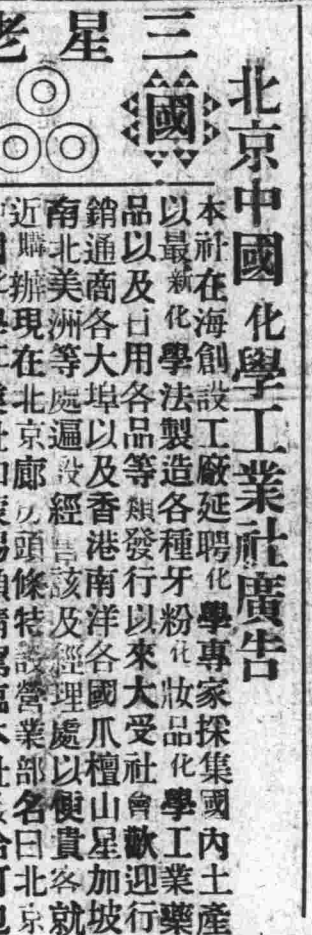 北京中國化學工業社廣告
三星老
國
本社在海創設工廠延聘化學專家採集國內土產
以最新化學法製造各種牙粉化妝品化學工業藥
品以及日用各品等類發行以來大受社會歡迎行
銷通商各大埠以及香港南洋各國爪檀山星加坡
南北美洲等處遍設經售該及經理處以便貴客就
近購辦現在北京廊房頭條特設營業部名曰北京